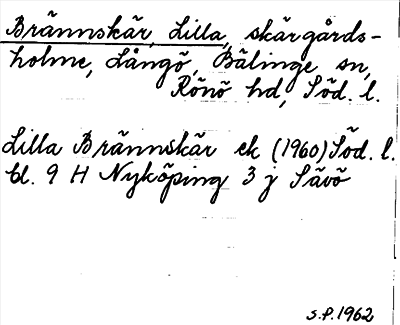 Brännskär, Lilla, skärgårds-
holme, Långö, Bälinge sn,
Rönö hd, Söd. l.
Lilla Brännskär ek (1960) Söd. l.
bl. 9 H Nyköping 3 j Sävö
S.P. 1962